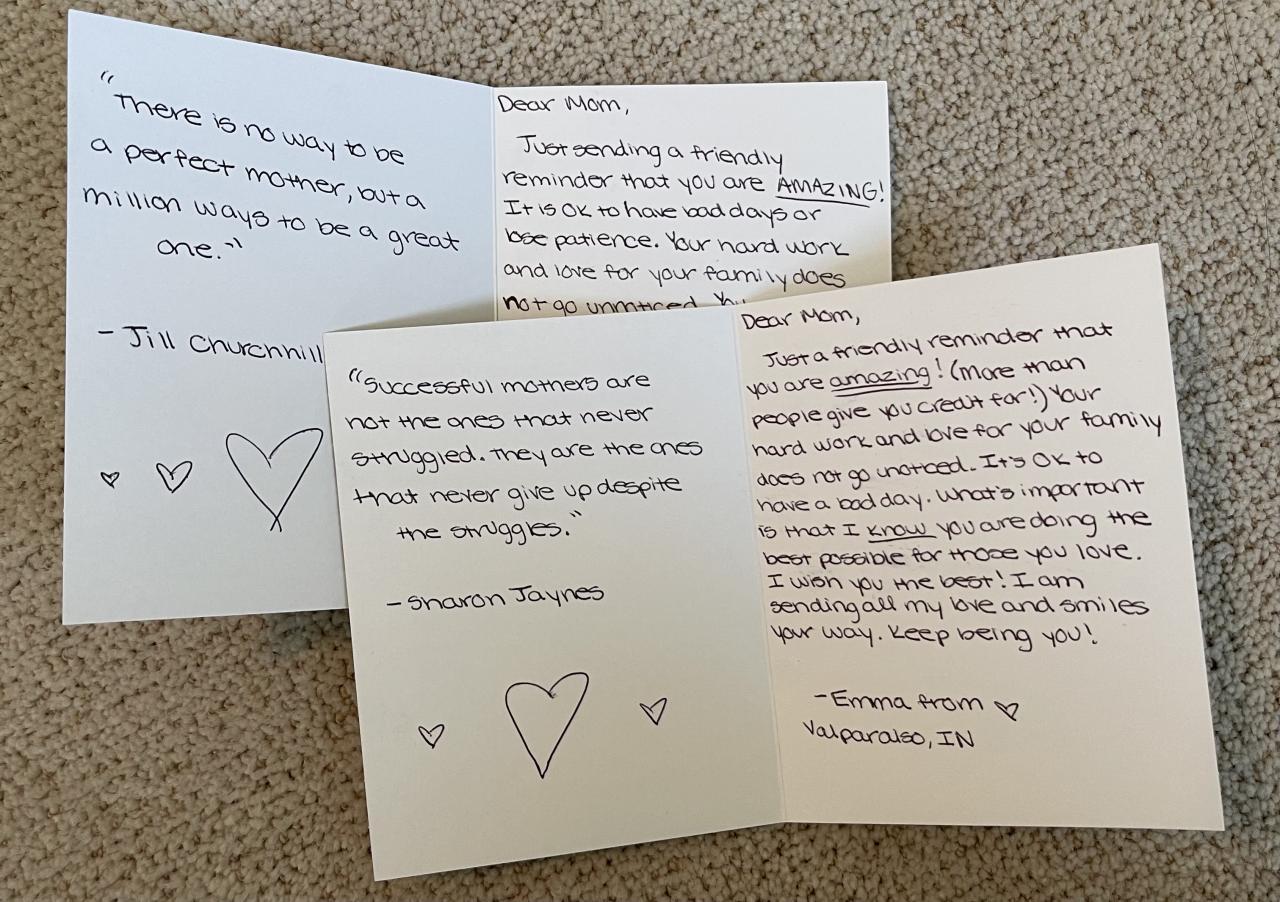 "There is no way to be
a perfect mother, but a
million ways to be a great
one."
- Jill Churchhill
Dear Mom,
Just sending a friendly
reminder that you are AMAZING!
It is OK to have bad days or
lose patience. Your hard work
and love for your family does
not go unnoticed.
"Successful mothers are
not the ones that never
struggled. They are the ones
that never give up despite
the struggles."
- Sharon Jaynes
Dear Mom,
Just a friendly reminder that
you are amazing! (More than
people give you credit for!) Your
hard work and love for your family
does not go unoticed. It's OK to
have a bad day. What's important
is that I know you are doing the
best possible for those you love.
I wish you the best! I am
sending all my love and smiles
your way. Keep being you!
- Emma from
Valparaiso, IN